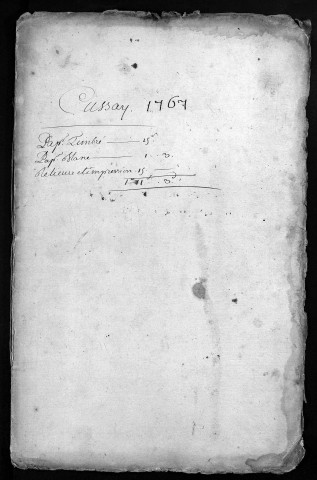 Cussay. 1767
Pap.r Timbré — 15
Pap.r blanc — 1. 0.
Relieure et impression 15